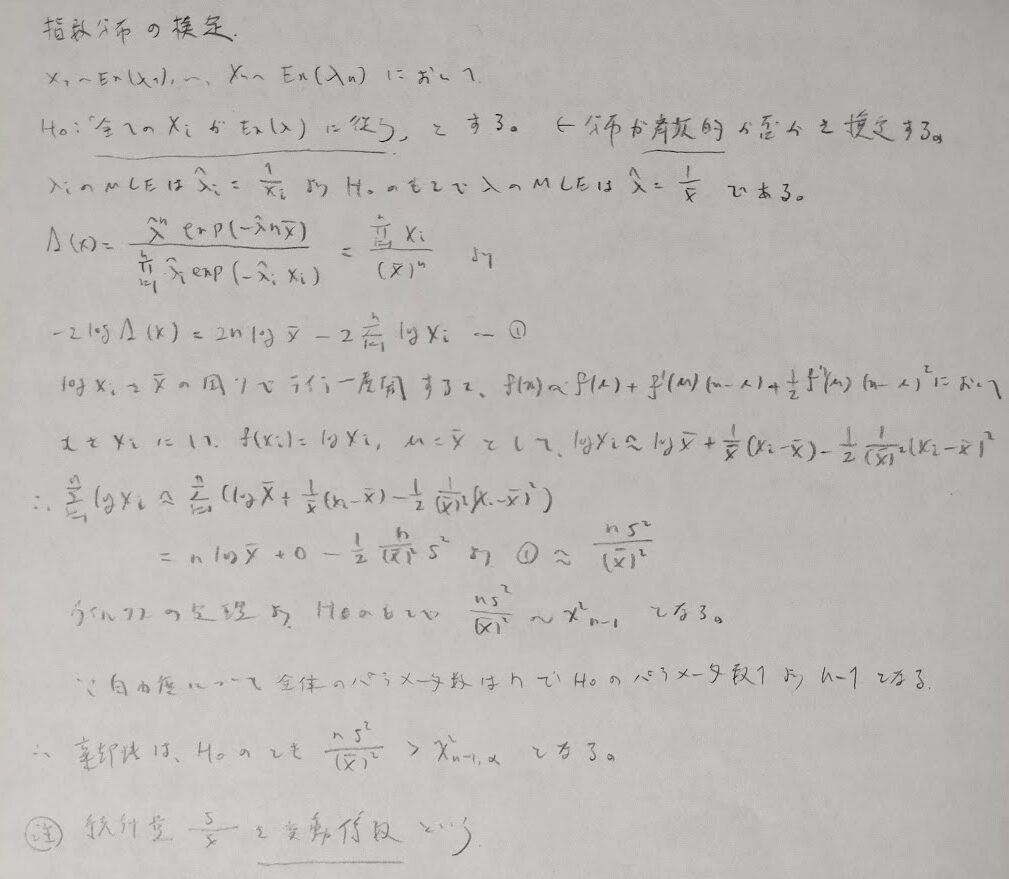 指数分布の検定.
X₁~Ex(λ₁), …, Xₙ~Ex(λₙ) において
H₀:「全ての Xᵢ が Ex(λ) に従う」とする。 ← 分布が か否かを検定する。
λᵢのMLEは λ̂ᵢ = 1/xᵢ より H₀のもとで λのMLEは λ̂ = 1/x̄ である。
Λ(x) = λ̂ⁿ exp(-λ̂n x̄) / ∏ᵢ₌₁ⁿ λ̂ᵢ exp(-λ̂ᵢ xᵢ) = ∏ᵢ₌₁ⁿ xᵢ / (x̄)ⁿ より
-2 log Λ(x) = 2n log x̄ - 2 Σᵢ₌₁ⁿ log xᵢ … ①
log xᵢ を x̄ の周りでテイラー展開すると、f(x) ≈ f(μ) + f'(μ)(x-μ) + 1/2 f''(μ)(x-μ)² において
xを xᵢ にして、f(xᵢ) = log xᵢ, μ = x̄ として、log xᵢ ≈ log x̄ + 1/x̄ (xᵢ - x̄) - 1/2 1/(x̄)² (xᵢ - x̄)²
∴ Σᵢ₌₁ⁿ log xᵢ ≈ Σᵢ₌₁ⁿ (log x̄ + 1/x̄ (xᵢ - x̄) - 1/2 1/(x̄)² (xᵢ - x̄)²)
= n log x̄ + 0 - 1/2 n/(x̄)² s² より ① ≈ ns²/(x̄)²
ウィルクスの定理より H₀のもとで ns²/(x̄)² ~ χ²ₙ₋₁ となる。
∵ 自由度について全体のパラメータ数は n で H₀ のパラメータ数 1 より n-1 となる.
∴ 棄却域は、H₀のもと ns²/(x̄)² > χ²ₙ₋₁,α となる。
注 統計量 s/x̄ を変動係数という